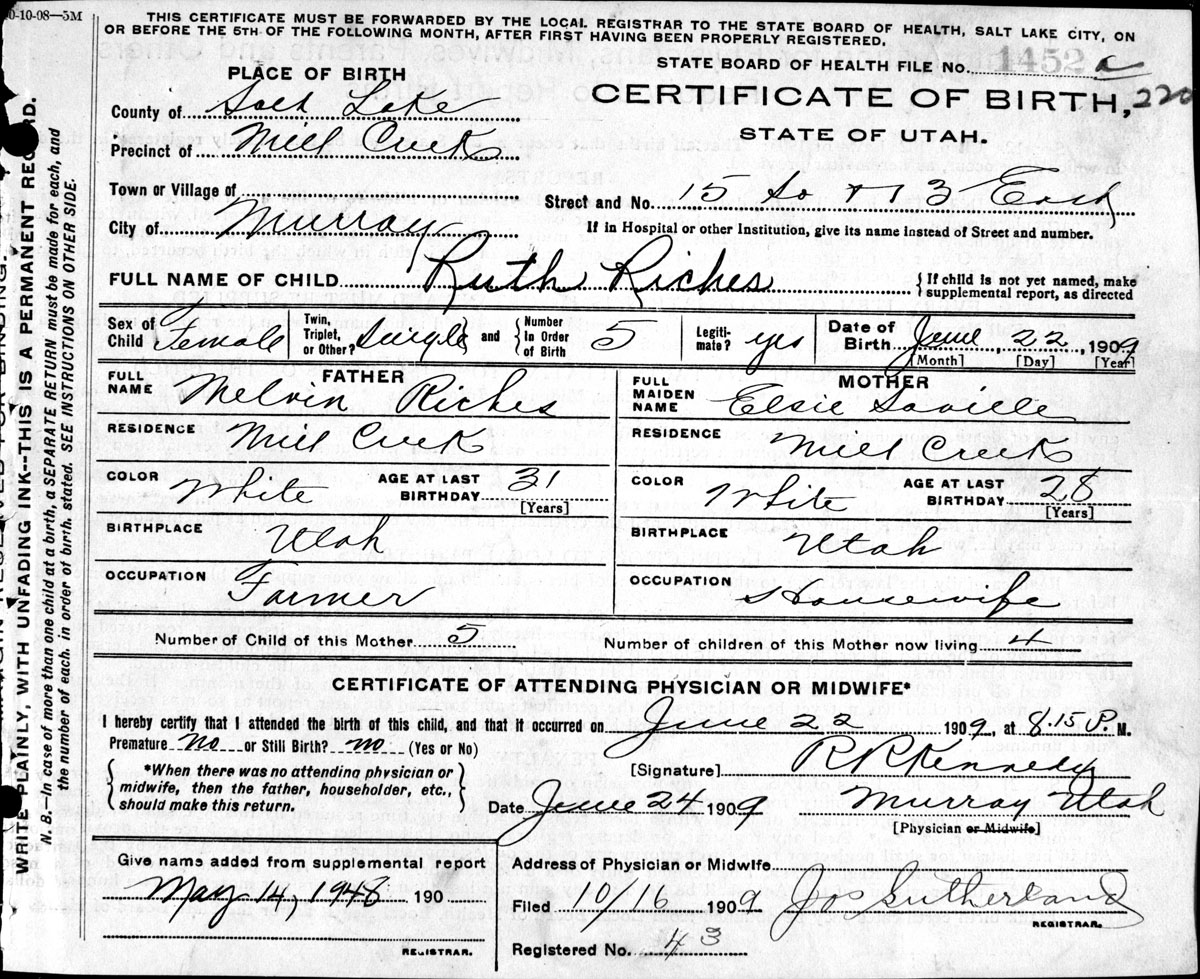 0-10-08—5M
THIS CERTIFICATE MUST BE FORWARDED BY THE LOCAL REGISTRAR TO THE STATE BOARD OF HEALTH, SALT LAKE CITY, ON
OR BEFORE THE 5TH OF THE FOLLOWING MONTH, AFTER FIRST HAVING BEEN PROPERLY REGISTERED.
STATE BOARD OF HEALTH FILE No. 1452 a
CERTIFICATE OF BIRTH, 220
STATE OF UTAH.
PLACE OF BIRTH
County of Salt Lake
Precinct of Mill Creek
Town or Village of
Street and No. 15 So + 13 East
City of Murray
If in Hospital or other Institution, give its name instead of Street and number.
FULL NAME OF CHILD Ruth Riches
{If child is not yet named, make
supplemental report, as directed
Sex of Child Female
Twin, Triplet, or Other? Single and {Number In Order of Birth 5
Legiti-mate? yes
Date of Birth June, 22, 1909
[Month] [Day] [Year]
FATHER
FULL NAME Melvin Riches
RESIDENCE Mill Creek
COLOR White AGE AT LAST BIRTHDAY 31
[Years]
BIRTHPLACE Utah
OCCUPATION Farmer
MOTHER
FULL MAIDEN NAME Elsie Saville
RESIDENCE Mill Creek
COLOR White AGE AT LAST BIRTHDAY 28
[Years]
BIRTHPLACE Utah
OCCUPATION Housewife
Number of Child of this Mother 5 Number of children of this Mother now living 4
CERTIFICATE OF ATTENDING PHYSICIAN OR MIDWIFE*
I hereby certify that I attended the birth of this child, and that it occurred on June 22 1909, at 8.15 P. M.
Premature no or Still Birth? no (Yes or No)
{*When there was no attending physician or
midwife, then the father, householder, etc.,
should make this return.}
[Signature] R R Kennedy
Date June 24 1909 Murray Utah
[Physician or Midwife]
Give name added from supplemental report
May 14, 1948 190
REGISTRAR.
Address of Physician or Midwife
Filed 10/16 1909 Jos Sutherland
REGISTRAR.
Registered No. 43
WRITE PLAINLY, WITH UNFADING INK--THIS IS A PERMANENT RECORD.
N. B.—In case of more than one child at a birth, a SEPARATE RETURN must be made for each, and
the number of each, in order of birth, stated. SEE INSTRUCTIONS ON OTHER SIDE.